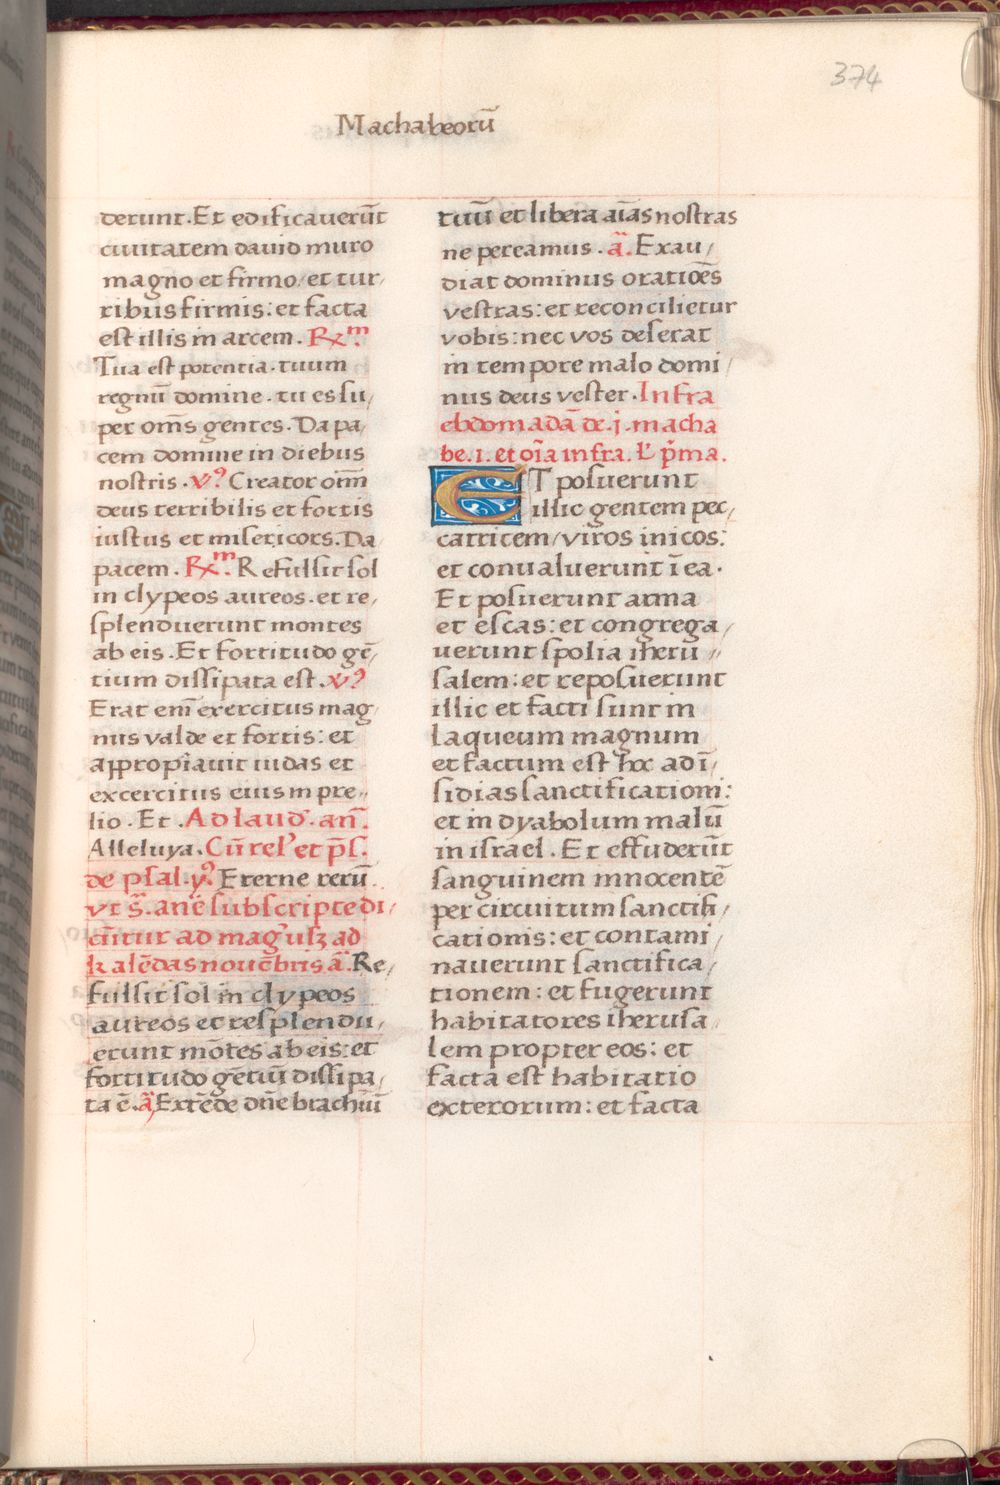 374
Machabeorū
derunt. Et edificaverūt
civitatem david muro
magno et firmo / et tur,
ribus firmis: et facta
est illis in arcem. Rx.m
Tua est potentia. tuum
regnū domine. tu es su,
per om̄s gentes. Da pa,
cem domine in diebus
nostris. v9 Creator om̄
deus terribilis et fortis
iustus et misericors. Da
pacem. Rx.m Refulsit sol
in clypeos aureos. et re,
splenduerunt montes
ab eis. Et fortitudo gē,
tium dissipata est. v9
Erat em̄ exercitus mag,
nus valde et fortis: et
appropīavit iudas et
excercitus eius in pre,,
lio. Et. Ad laud'. an̄.
Alleluya. Cū rel' et p̄s.
de psal. y9. Eterne rerū.
vt s̄. ane subscripte di,
cūtur ad mag' usqz ad
kalēdas novēbris ā. Re,
fulsit sol in clypeos
aureos et resplendu,
erunt mōtes ab eis: et
fortitudo gētiū dissipa,
ta ē. ā Extēde dn̄e brachiū
tuū et libera aīas nostras
ne pereamus. ā. Exau,
diat dominus oratiōes
vestras: et reconcilietur
vobis: nec vos deserat
in tempore malo domi,
nus deus vester. Infra
ebdomadā de. j. macha
be. 1. et oīa infra. L' p̄ma.
ET posuerunt
illic gentem pec,
catricem / viros inicos:
et convaluerunt ī ea.
Et posuerunt arma
et escas: et congrega,
verunt spolia iherū,,
salem: et reposuerunt
illic et facti sunt in
laqueum magnum
et factum est hoc ad ī,
sidias sanctificationi:
et in dyabolum malū
in israel. Et effuderūt
sanguinem innocentē
per circuitum sanctifi,
cationis: et contami,
naverunt sanctifica,
tionem: et fugerunt
habitatores iherusa,
lem propter eos: et
facta est habitatio
exterorum: et facta